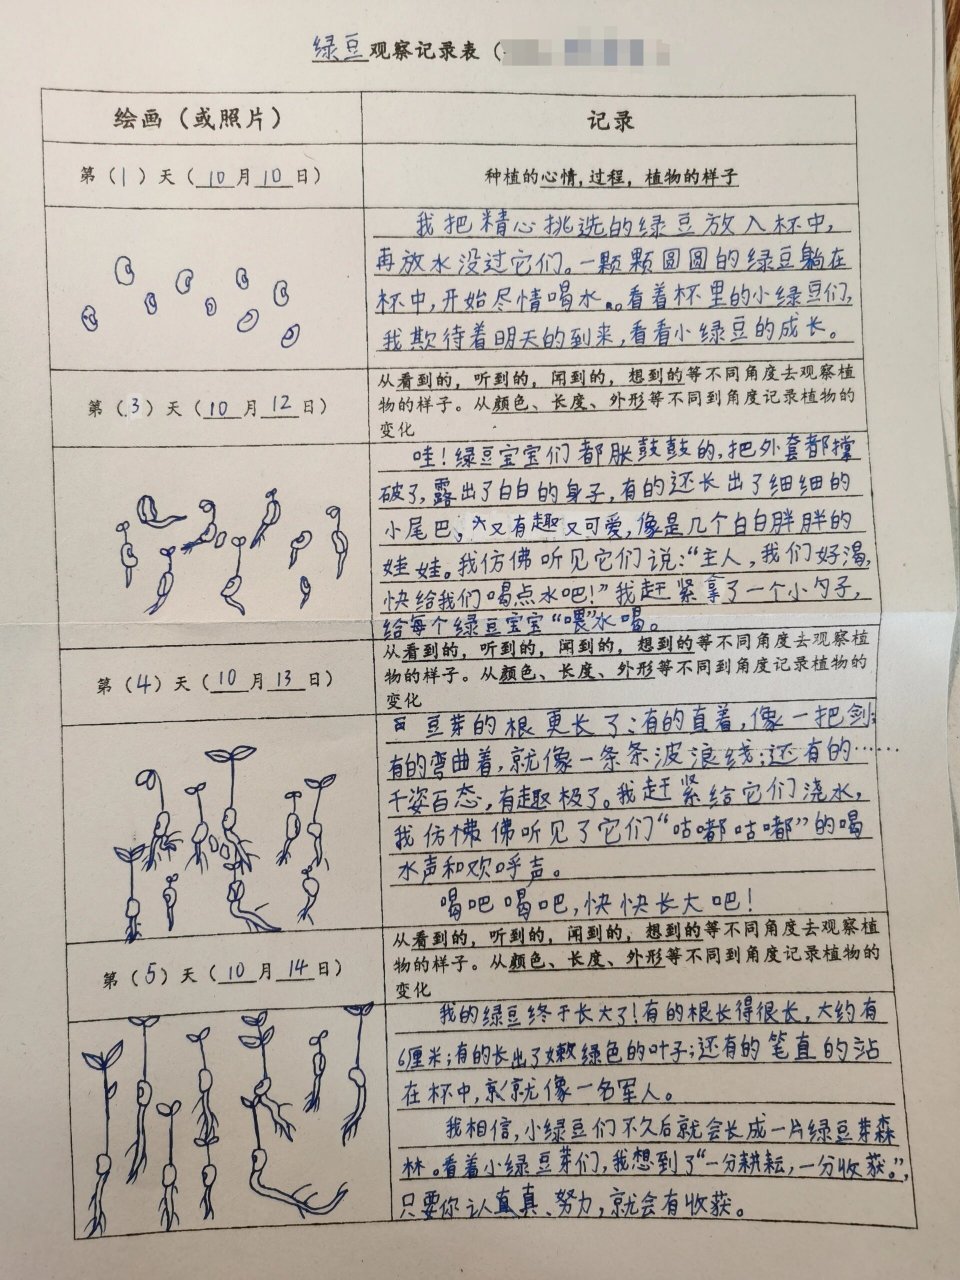 绿豆观察记录表（
绘画（或照片）
记录
第（1）天（10月10日）
种植的心情,过程，植物的样子
我把精心挑选的绿豆放入杯中,
再放水没过它们。一颗颗圆圆的绿豆躺在
杯中,开始尽情喝水。看着杯里的小绿豆们,
我欺待着明天的到来,看看小绿豆的成长。
第（3）天（10月12日）
从看到的，听到的，闻到的，想到的等不同角度去观察植
物的样子。从颜色、长度、外形等不同到角度记录植物的
变化
哇!绿豆宝宝们都胀鼓鼓的,把外套都撑
破了,露出了白白的身子,有的还长出了细细的
小尾巴。又有趣又可爱,像是几个白白胖胖的
娃娃。我仿佛听见它们说:“主人,我们好渴,
快给我们喝点水吧!”我赶紧拿了一个小勺子,
给每个绿豆宝宝“喂”水喝。
第（4）天（10月13日）
从看到的，听到的，闻到的，想到的等不同角度去观察植
物的样子。从颜色、长度、外形等不同到角度记录植物的
变化
豆芽的根更长了:有的直着,像一把剑;
有的弯曲着,就像一条条波浪线;还有的……
千姿百态,有趣极了。我赶紧给它们浇水,
我仿佛佛听见了它们“咕嘟咕嘟”的喝
水声和欢呼声。
喝吧喝吧,快快长大吧!
第（5）天（10月14日）
从看到的，听到的，闻到的，想到的等不同角度去观察植
物的样子。从颜色、长度、外形等不同到角度记录植物的
变化
我的绿豆终于长大了!有的根长得很长,大约有
6厘米;有的长出了嫩绿色的叶子;还有的笔直的站
在杯中,就像一名军人。
我相信,小绿豆们不久后就会长成一片绿豆芽森
林。看着小绿豆芽们,我想到了“一分耕耘,一分收获。”,
只要你认真真、努力,就会有收获。